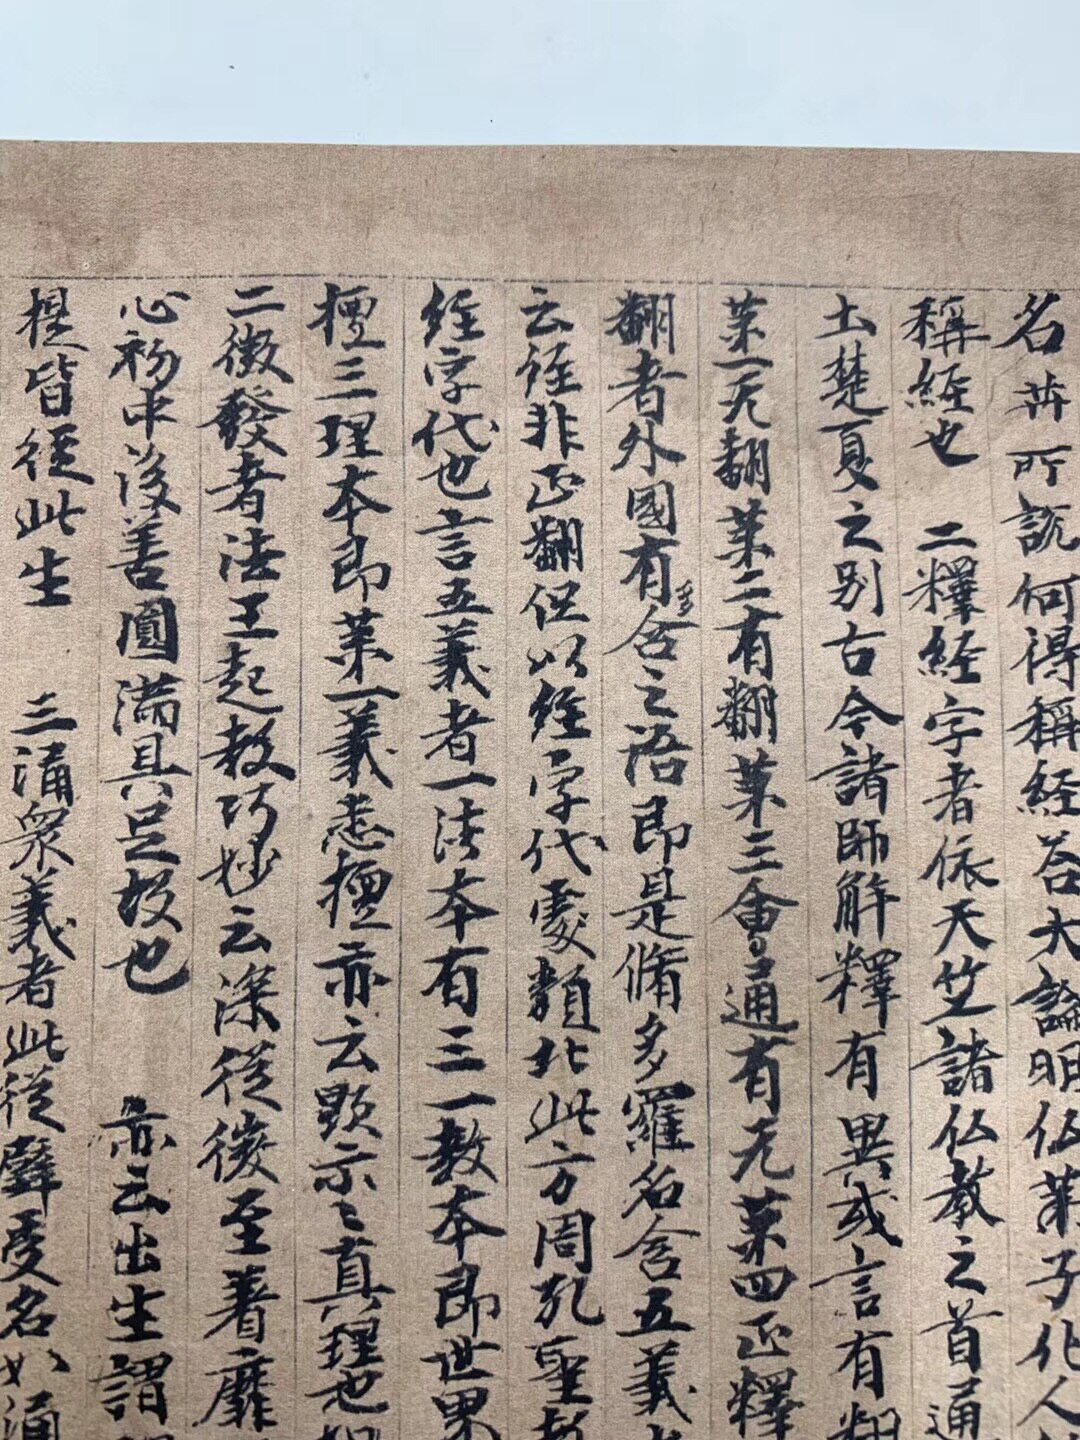 名䒑所説何得稱經荅大論明仏苐子化人
稱經也 二釋經字者依天竺諸仏教之首通
土楚夏之别古今諸師解釋有異或言有翻
苐一无翻苐二有翻苐三會通有无苐四正釋
翻者外國有含之语即是脩多羅名含五義
云經非正翻但以經字代處類北此方周孔聖教
經字代也言五義者一法本有三一教本即世界
檀三理本即苐一義悉檀亦云顯示〻真理也
二徴發者法王起教巧妙云深從微至著靡
心初中後善圓滿具足故也 亦云出生謂
提皆從此生 三涌衆義者此從譬受名如涌